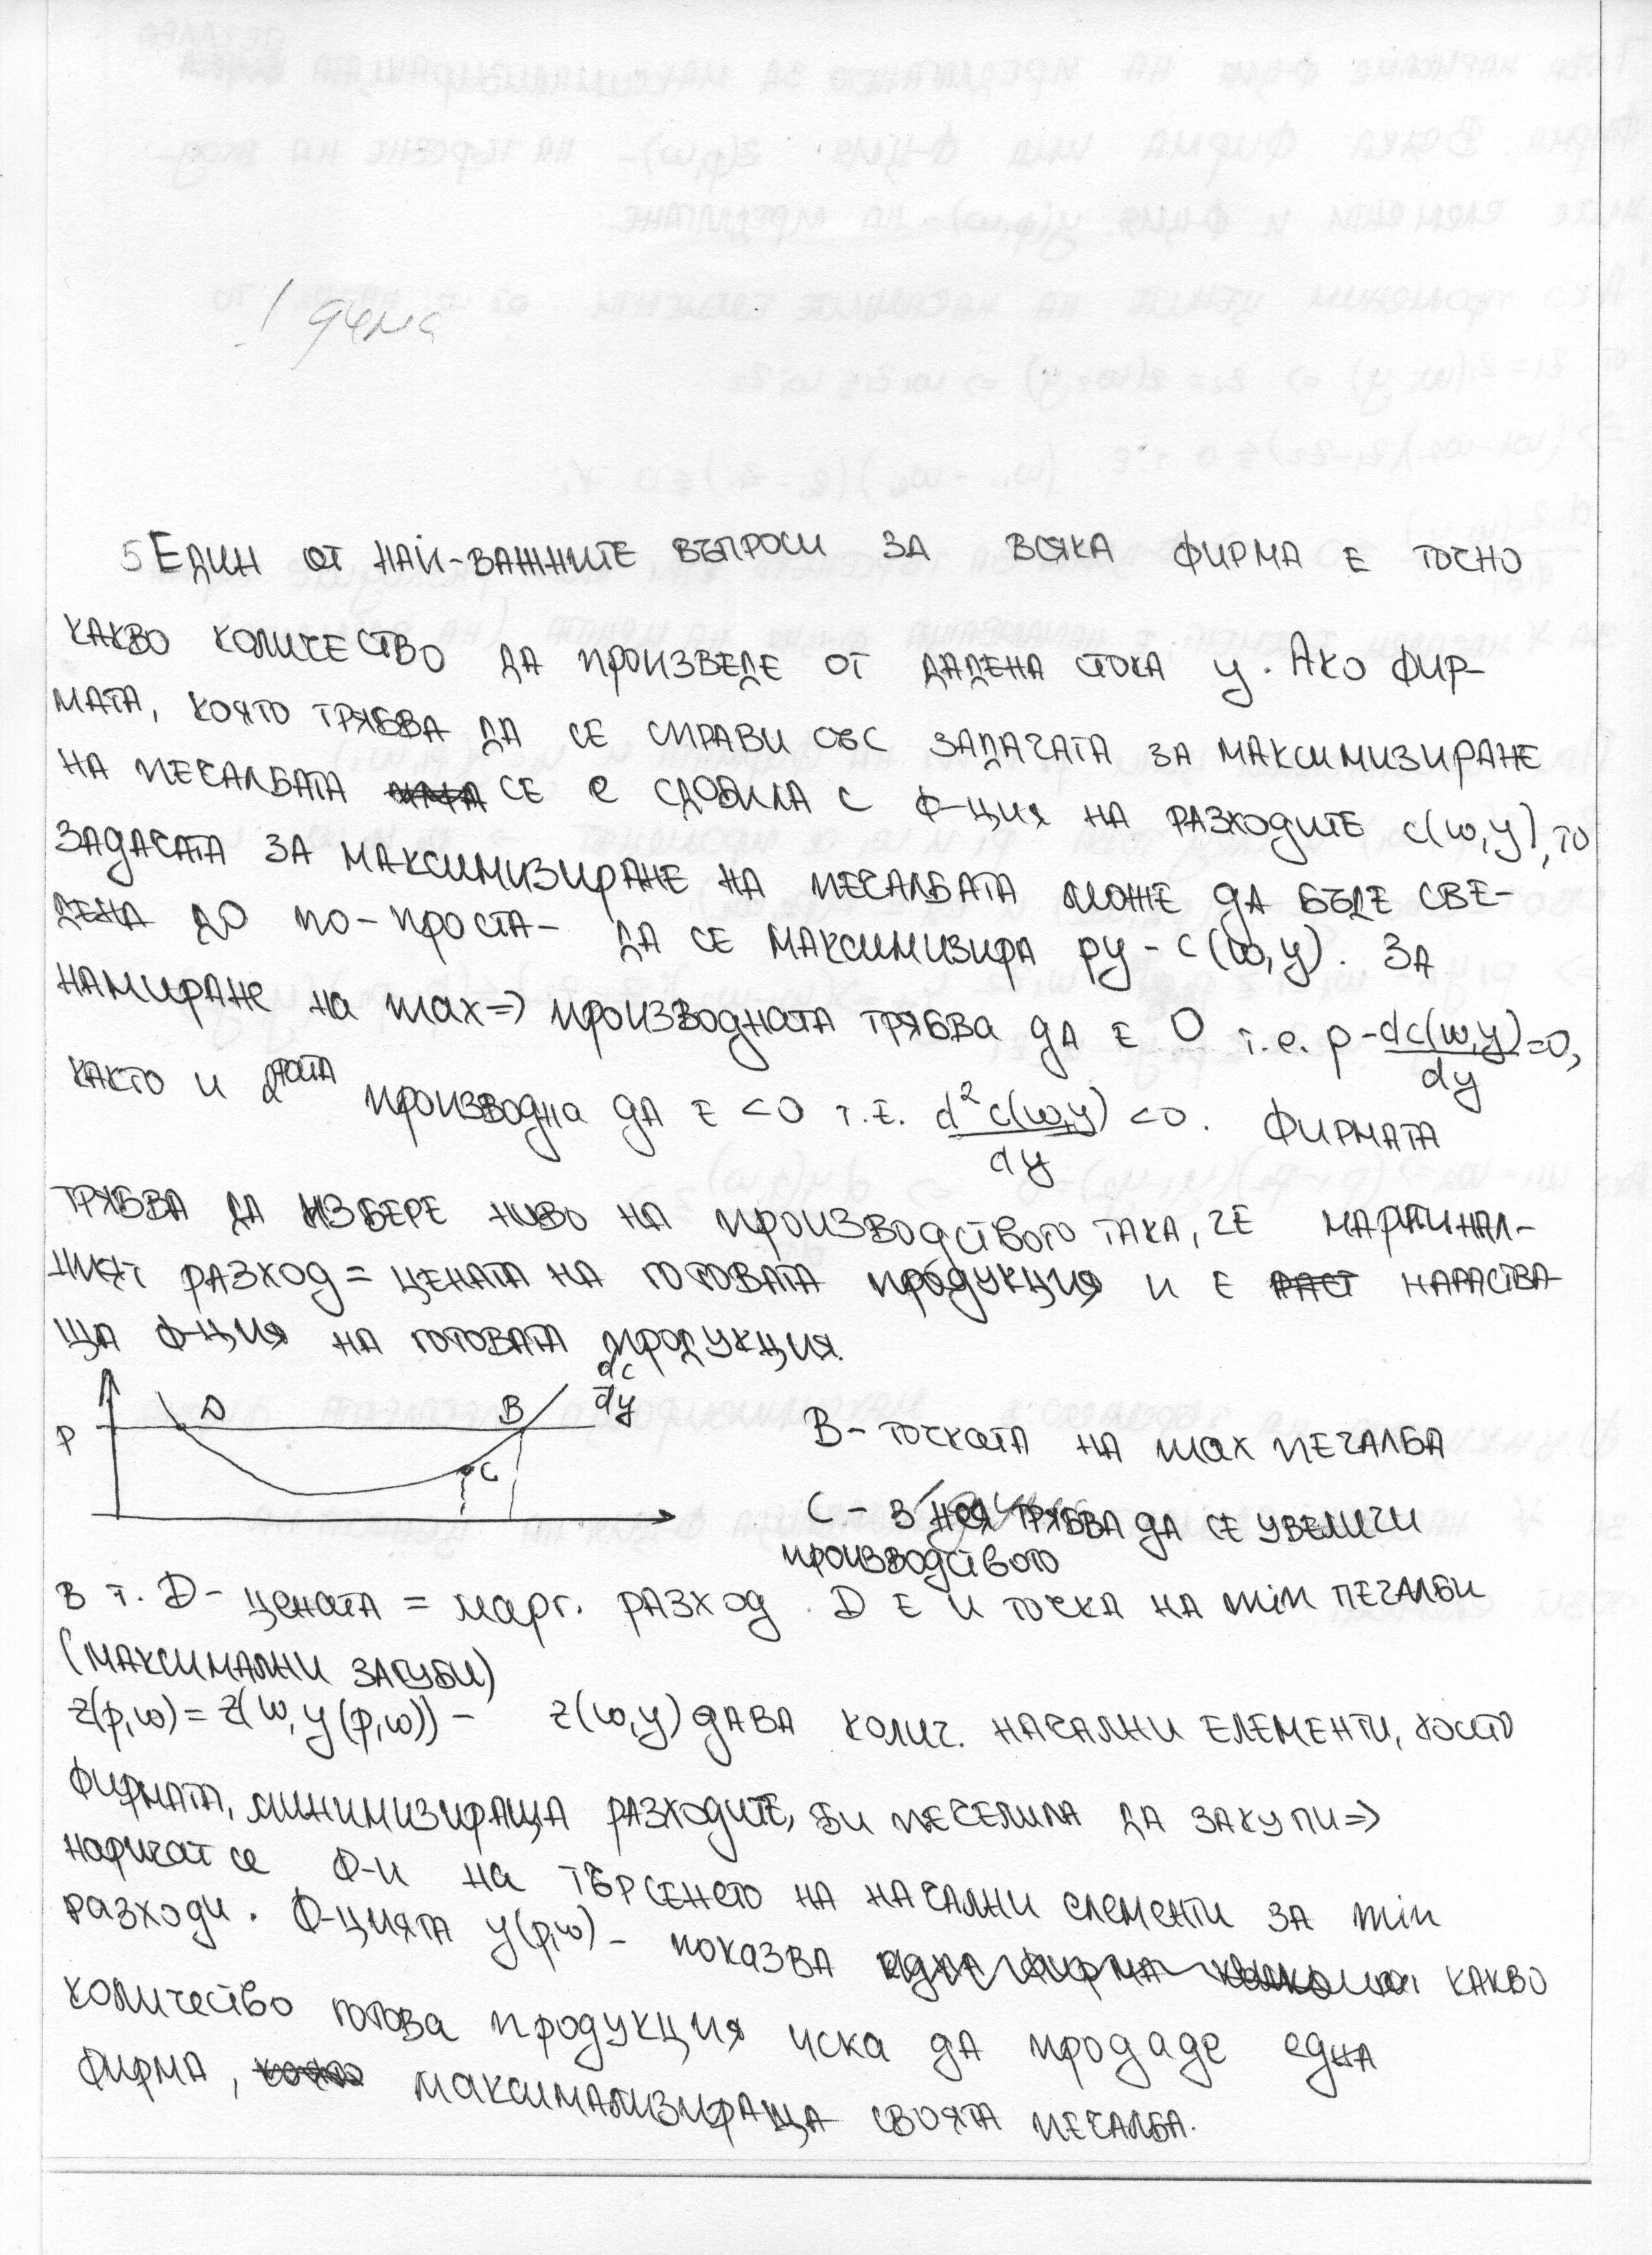 5 Един от най-важните въпроси за всяка фирма е точно
какво количество да произведе от дадена стока y. Ако фир-
мата, която трябва да се справи със задачата за максимизиране
на печалбата се е сдобила с ф-ция на разходите c(w,y), то
задачата за максимизиране на печалбата може да бъде све-
дена до по-проста- да се максимизира py - c(w,y). За
намиране на max => производната трябва да е 0 т.е. p - dc(w,y)/dy = 0,
както и 2рата производна да е < 0 т.е. d²c(w,y)/dy < 0. Фирмата
трябва да избере ниво на производството така, че маргинал-
ният разход = цената на готовата продукция и е нараства-
ща ф-ция на готовата продукция.
dc/dy
P D B C
B - точката на max печалба
C - в нея трябва да се увеличи
производството
В т. D - цената = марг. разход. D е и точка на min печалби
(максимални загуби)
z(p,w) = z(w, y(p,w)) - z(w,y) дава колич. начални елементи, които
фирмата, минимизираща разходите, би печелила да закупи =>
наричат се ф-и на търсенето на начални елементи за min
разходи. Ф-цията y(p,w) - показва какво
количество готова продукция иска да продаде една
фирма, максимализираща своята печалба.